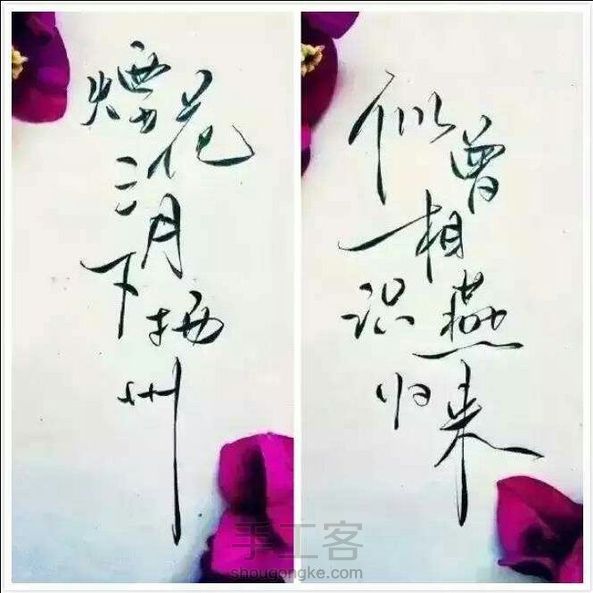 煙花三月下扬州
似曾相识燕归来
手工客
shougongke.com